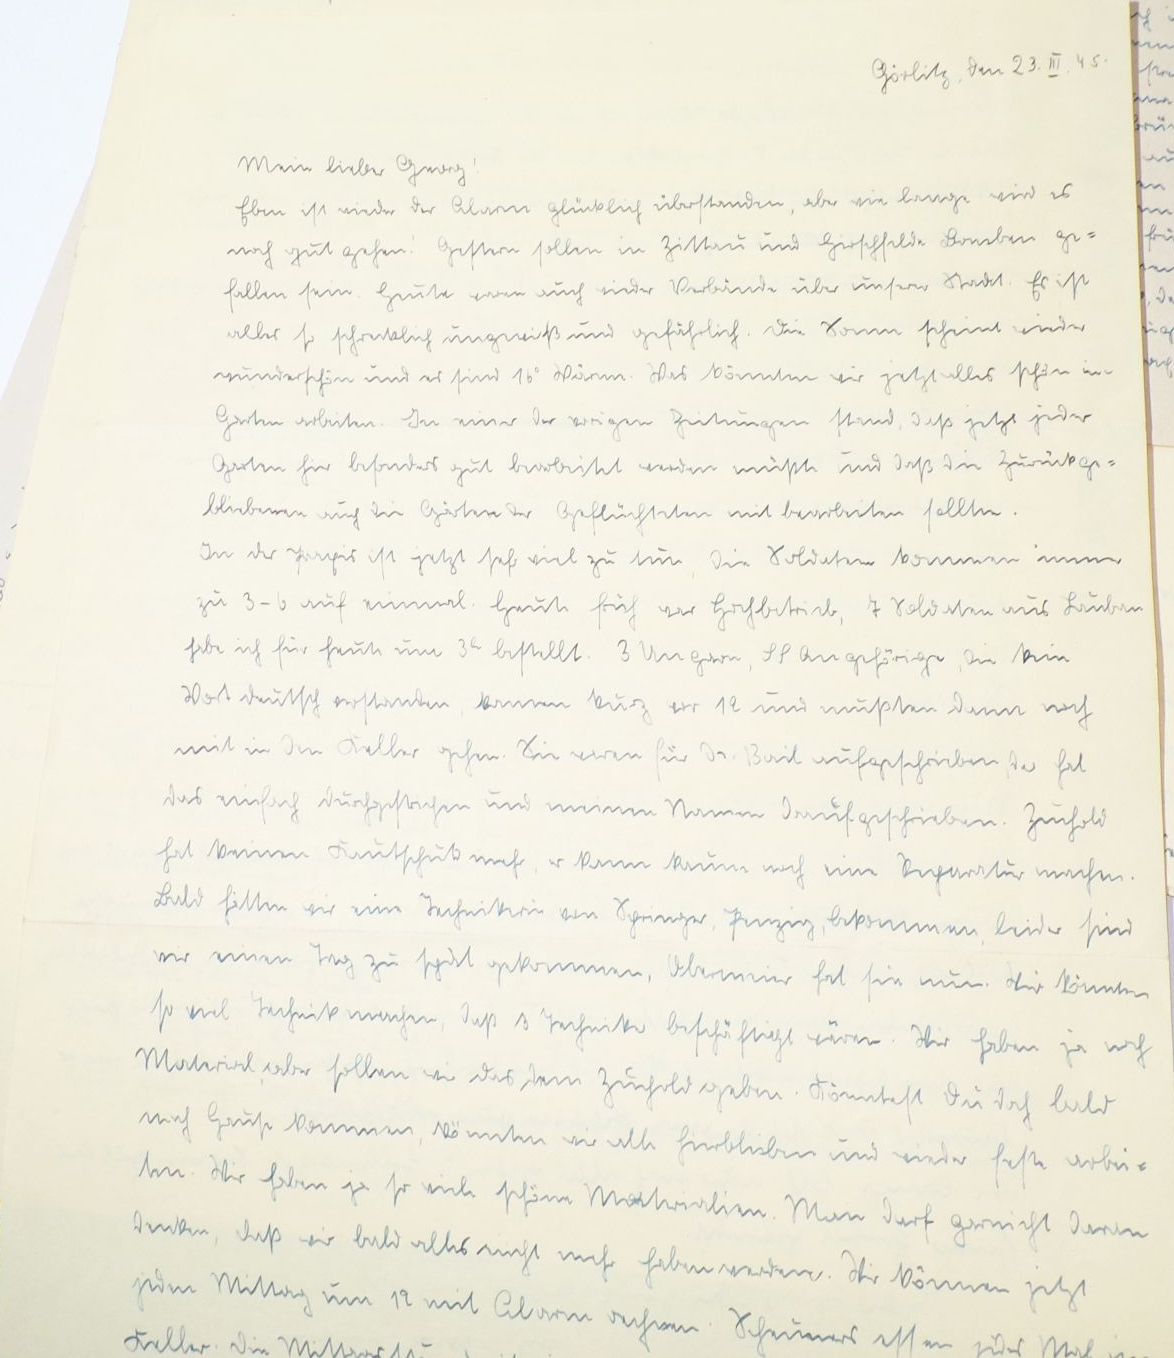 Görlitz, den 23. III. 45.
Mein lieber Georg!
Eben ist wieder der Alarm glücklich überstanden, aber wie lange wird es
noch gut gehen! Gestern sollen in Zittau und Hirschfelde Bomben ge=
fallen sein. Heute waren auch wieder Verbände über unserer Stadt. Es ist
alles so schrecklich ungewiß und gefährlich. Die Sonne scheint wieder
wunderschön und es sind 16° Wärme. Was könnten wir jetzt alles schön im
Garten arbeiten. In einer der vorigen Zeitungen stand, daß jetzt jeder
Garten hier besonders gut bearbeitet werden müßte und daß die Zurückge=
bliebenen auch die Gärten der Geflüchteten mit bearbeiten sollten.
In der Praxis ist jetzt sehr viel zu tun, die Soldaten kommen immer
zu 3-6 auf einmal. Heute früh war Hochbetrieb, 7 Soldaten aus Lauban
habe ich für heute um 3h bestellt. 3 Ungarn, SS Angehörige, die kein
Wort deutsch verstanden, kamen kurz vor 12 und mußten dann noch
mit in den Keller gehen. Sie waren für Dr. Bail aufgeschrieben, der hat
das einfach durchgestrichen und meinen Namen daraufgeschrieben. Zuchold
hat keinen Kautschuk mehr, er kann kaum noch eine Reparatur machen.
Bald hätten wir eine Technikerin von Springer, Penzig, bekommen, leider sind
wir einen Tag zu spät gekommen, Obermeier hat sie nun. Wir könnten
so viel Technik machen, daß 3 Techniker beschäftigt wären. Wir haben ja noch
Material, aber sollen wir das dem Zuchold geben. Könntest Du doch bald
nach Hause kommen, könnten wir alle hierbleiben und wieder feste arbei=
ten. Wir haben ja so viele schöne Materialien. Man darf garnicht daran
denken, daß wir bald alles nicht mehr haben werden. Wir können jetzt
jeden Mittag um 12 mit Alarm rechnen. Scheuners essen jedes Mal im
Keller. Die